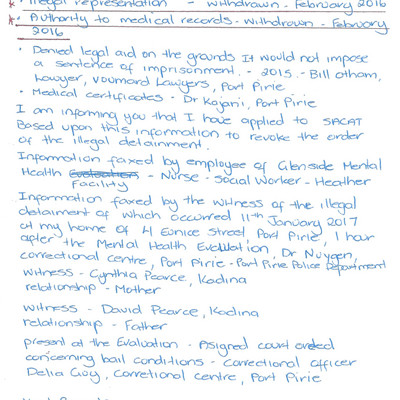 * • Illegal representation - withdrawn - February 2016
* • Authority to medical records - withdrawn - February
2016.
• Denied legal aid on the grounds It would not impose
a sentence of imprisonment. - 2015. - Bill Otham,
Lawyer, Voumard Lawyers, Port Pirie
• Medical certificates - Dr Kajani, Port Pirie
I am informing you that I have applied to SACAT
Based upon this information to revoke the order
of the illegal detainment.
Information faxed by employee of Glenside Mental
Health Evaluation - Nurse - Social Worker - Heather
Facility
Information faxed by the witness of the illegal
detaiment of which occurred 11th January 2017
at my home of 4 Eunice Street, Port Pirie, 1 hour
after the Mental Health Evaluation, Dr Nuygen,
correctional centre, Port Pirie - Port Pirie Police Department
witness - Cynthia Pearce, Kadina
relationship - Mother
witness - David Pearce, Kadina
relationship - Father
present at the Evaluation - Asigned court orded
concerning bail conditions - Correctional officer
Delia Guy, Corretional centre, Port Pirie